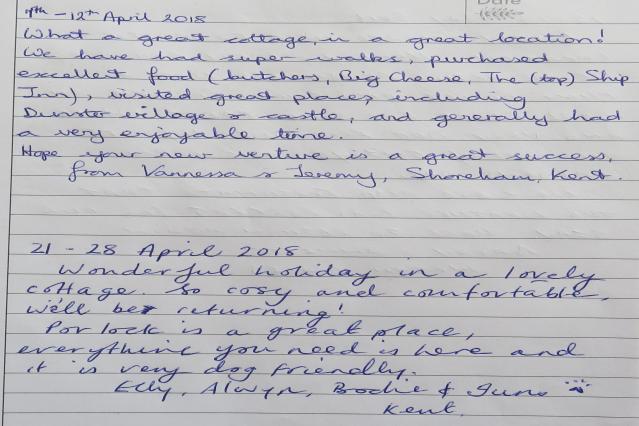 Date
9th - 12th April 2018
What a great cottage, in a great location!
We have had super walks, purchased
excellent food (butchers, Big Cheese, The (top) Ship
Inn), visited great places, including
Dunster village & castle, and generally had
a very enjoyable time.
Hope your new venture is a great success,
from Vannessa & Jeremy, Shoreham, Kent.
21 - 28 April 2018
Wonderful holiday in a lovely
cottage. So cosy and comfortable,
we'll be returning!
Porlock is a great place,
everything you need is here and
it is very dog friendly.
Elly, Alwyn, Bodie & Juno
Kent.